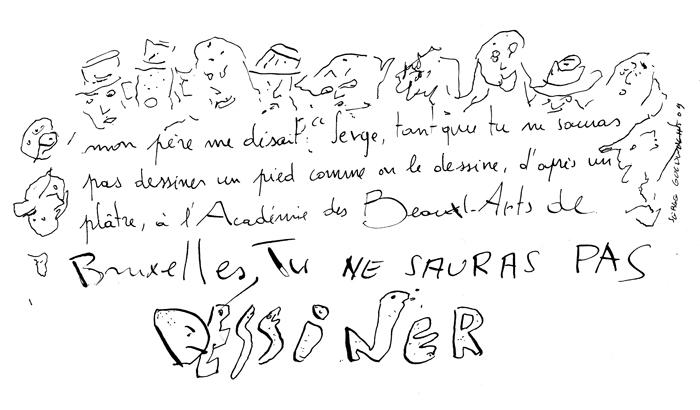 mon père me disait : "Serge, tant que tu ne sauras
pas dessiner un pied comme on le dessine, d'après un
plâtre, à l'Académie des Beaux-Arts de
Bruxelles, Tu NE SAURAS PAS
DESSiNER
SERGE GOLDWICHT 09